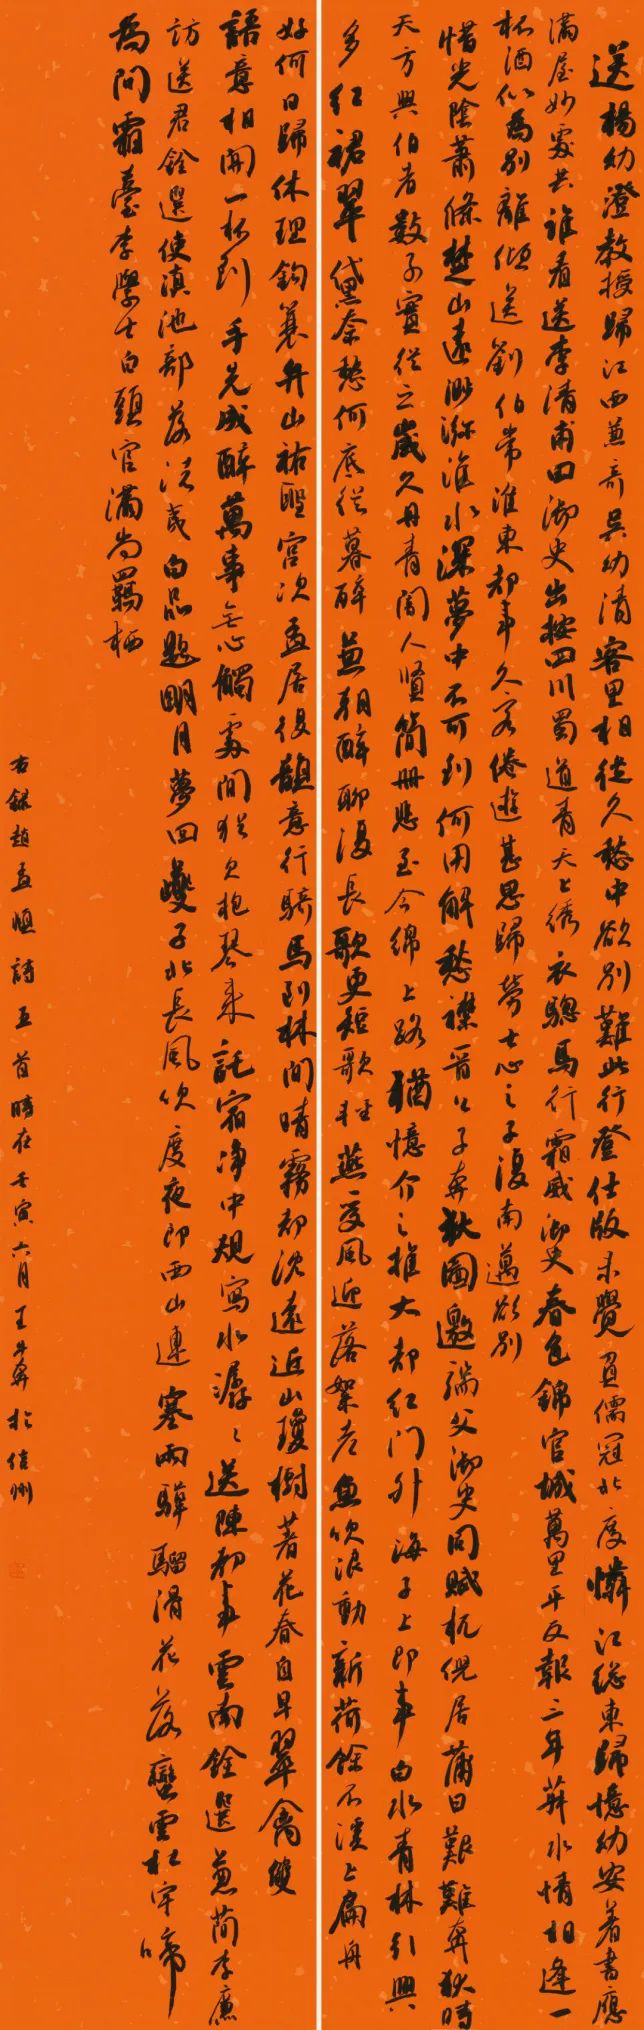 送楊幼澄教授歸江西兼寄吳幼清客里相從久愁中欲別難此行登仕版未覺負儒冠北度憐江總東歸憶幼安著書應
滿屋妙處共誰看送李清甫四御史出按四川蜀道青天上綉衣驄馬行霜威御史春色錦官城萬里平反報三年薜水情相逢一
杯酒似為別離傾送劉伯常淮東都事久客倦遊甚思歸勞士心之子復南邁欲別
惜光陰蕭條楚山遠渺瀰淮水深夢中不可到何用解愁襟晉公子奔狄圖邀端父御史同賦杌倪居蒲日艱難奔狄時
天方興伯者數子實從之歲久丹青闇人賢簡冊悲至今綿上路猶憶介之推大都紅門外海子上即事白水青林引興
多紅裙翠黛奈愁何底從暮醉兼朝醉聊復長歌更短歌輕燕受風迎落絮老魚吹浪動新荷餘不溪上扁舟
好何日歸休理釣蓑弁山祐聖宮次孟居復韻意行騎馬到林間晴霧都沈遠近山瓊樹著花春自早翠禽雙
語意相閒一杯到手先成醉萬事無心觸處間猶欠抱琴來託宿淨中規寫水潺々送陳都事雲南銓選兼簡李廉
訪送君銓選使滇池部落從戎向品題明月夢回𤏡子北長風吹度夜郎西山連塞雨驊騮滑花落蠻雲杜宇啼
為問霜臺李學士白頭官滿尚羈栖
右錄趙孟頫詩五首時在壬寅六月王        於信州